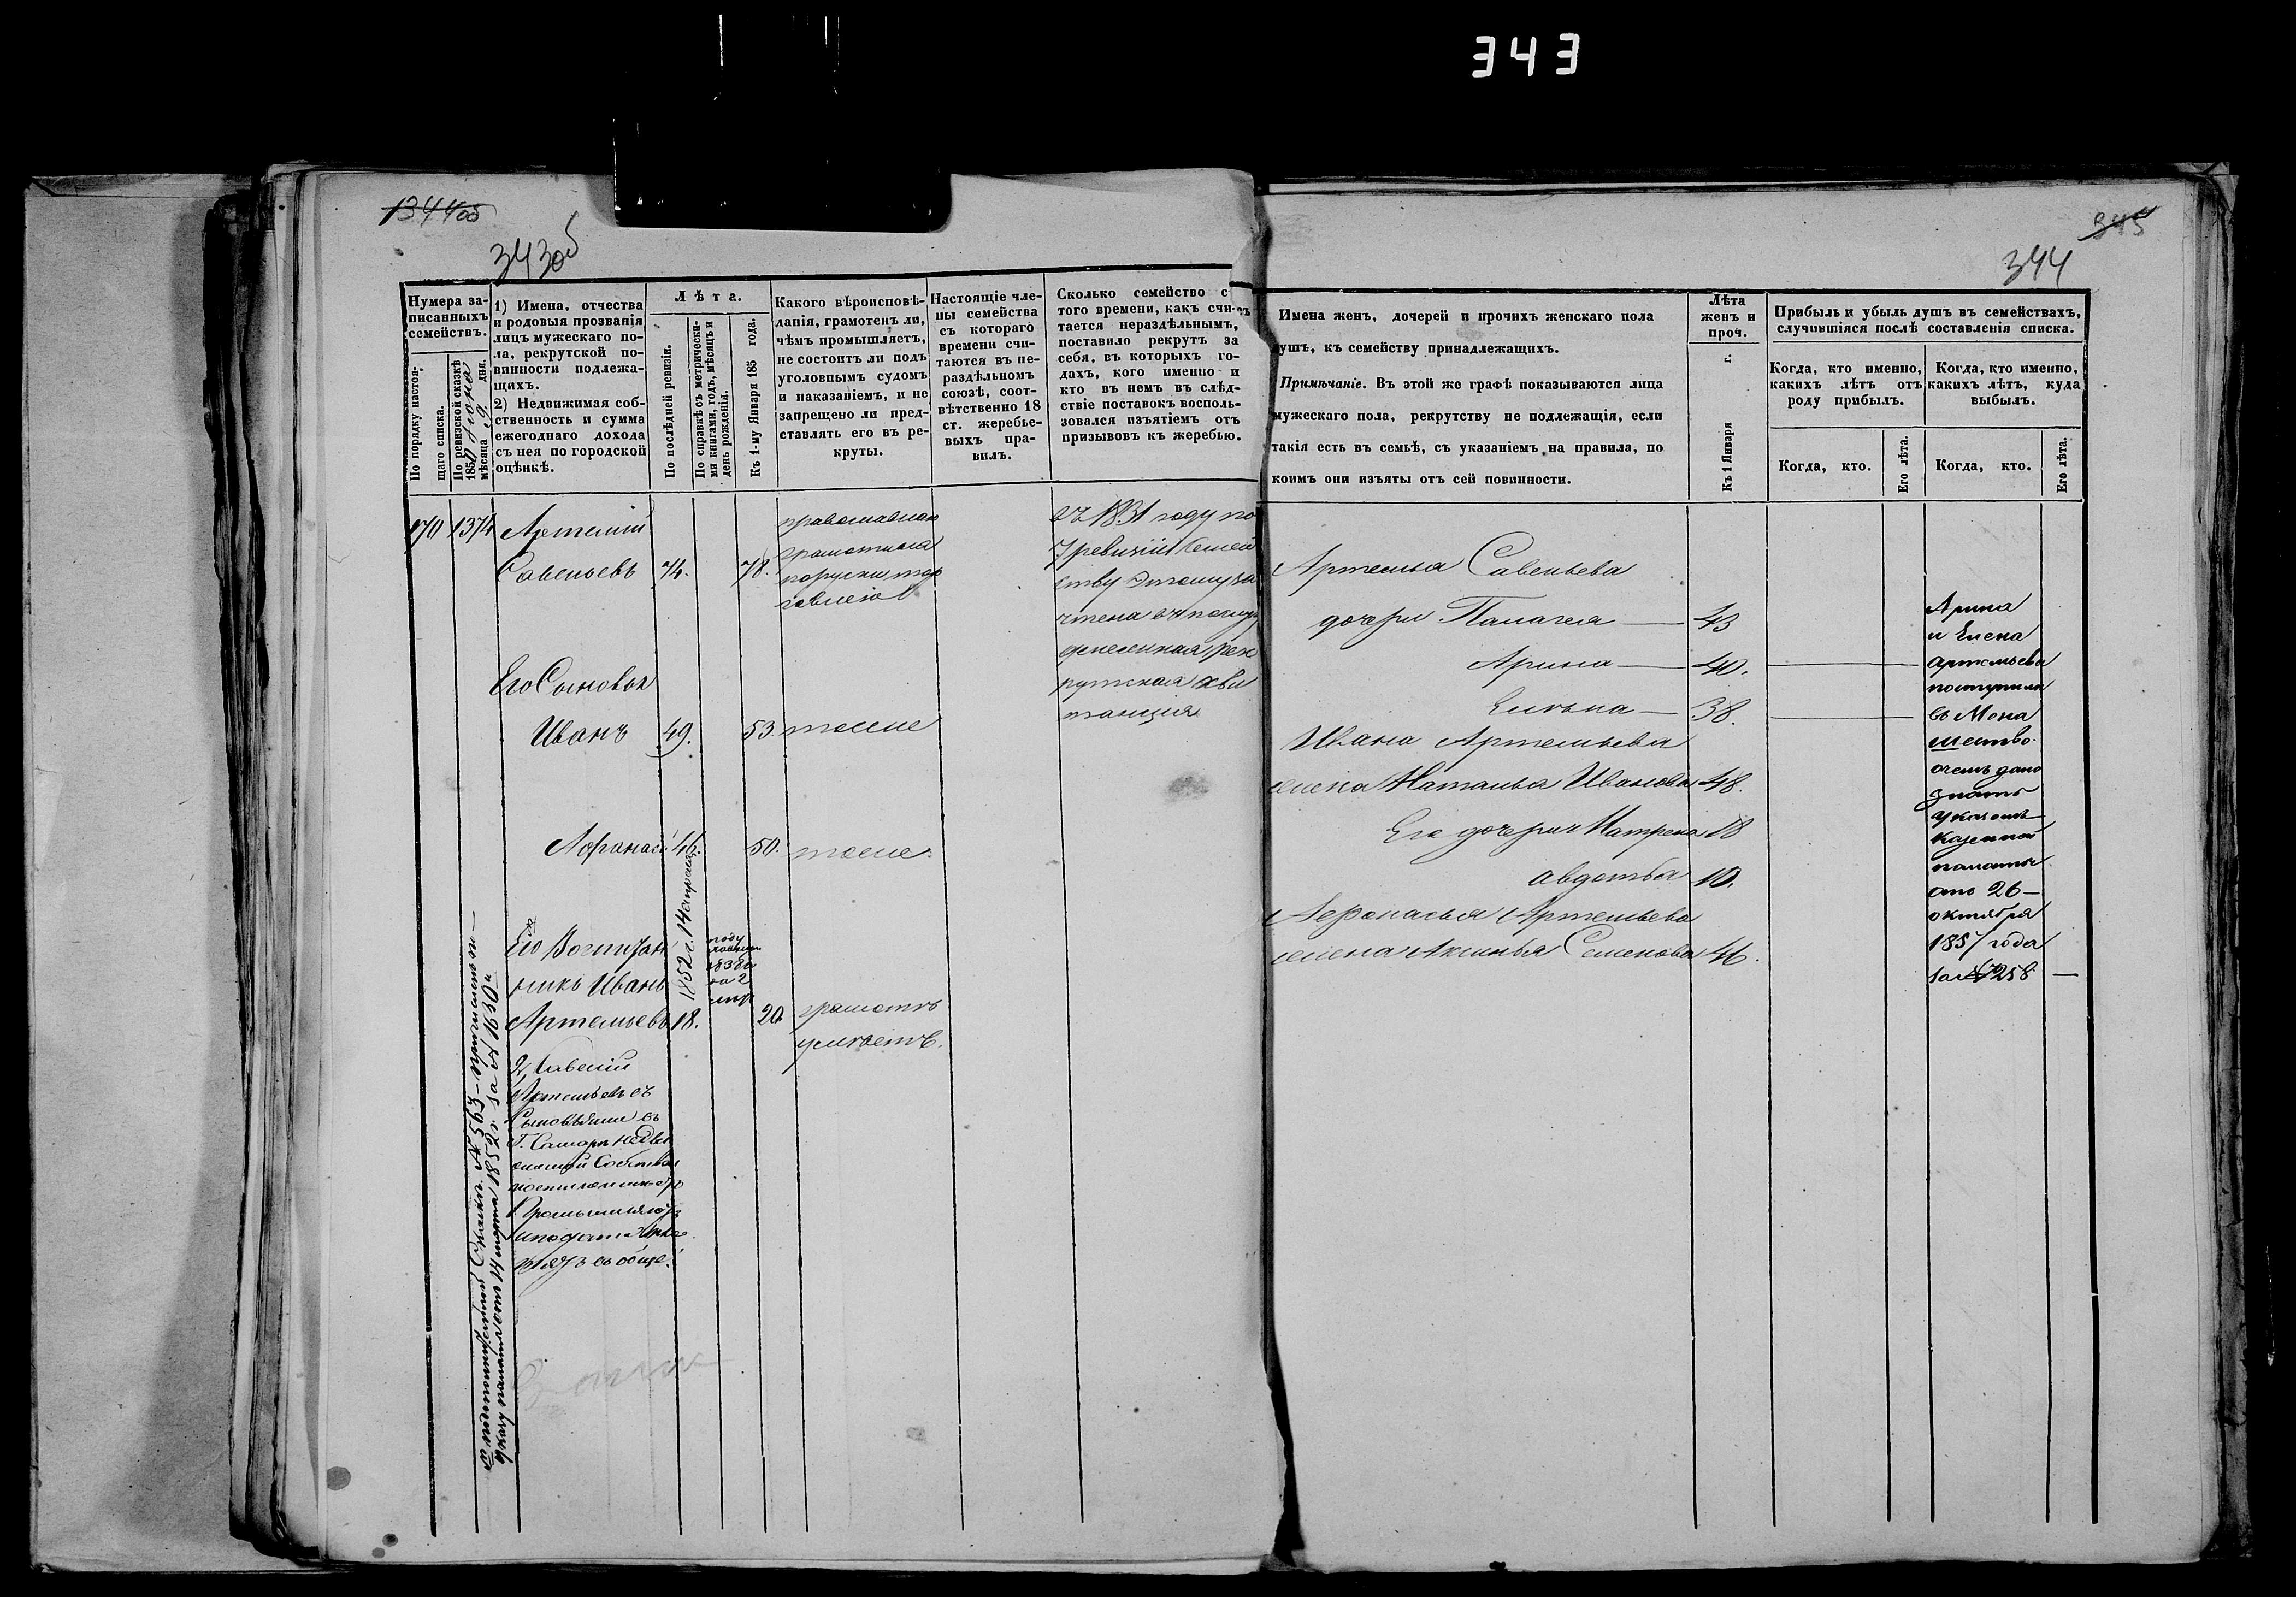 343
1344об
343об
Нумера за-
писанныхъ
семействъ.
По порядку настоя-
щаго списка.
По ревизской сказкѣ
1850 Іюня
мѣсяца 9. дня.
1) Имена, отчества
и родовыя прозванія
лицъ мужескаго по-
ла, рекрутской по-
винности подлежа-
щихъ.
2) Недвижимая соб-
ственность и сумма
ежегоднаго дохода
съ нея по городской
оцѣнкѣ.
Лѣта.
По послѣдней ревизіи.
По справкѣ съ метрически-
ми книгами, годъ, мѣсяцъ и
день рожденія.
Къ 1-му Января 185 года.
Какого вѣроисповѣ-
данія, грамотенъ ли,
чѣмъ промышляетъ,
не состоитъ ли подъ
уголовнымъ судомъ
и наказаніемъ, и не
запрещено ли пред-
ставлять его въ ре-
круты.
Настоящіе чле-
ны семейства
съ котораго
времени счи-
таются въ не-
раздѣльномъ
союзѣ, соот-
вѣтственно 18
ст. жеребье-
выхъ пра-
вилъ.
Сколько семейство съ
того времени, какъ счи-
тается нераздѣльнымъ,
поставило рекрутъ за
себя, въ которыхъ го-
дахъ, кого именно и
кто въ немъ въ слѣд-
ствіе поставокъ восполь-
зовался изъятіемъ отъ
призывовъ къ жеребью.
170 1374 Артемій
Савельевъ 74. 78.
православной
грамотна
поруски тор
говлею
въ 1831 году по
7 ревизіи Семей
ству Этому за
чтена
рек
рутская кви
танция
Его Сыновья
Иванъ 49. 53. тоже
Афанасій 46. 50. тоже
Его Воспитан
никъ Иванъ
Артемьевъ 18. 20 грамотѣ
умѣетъ.
1852 г. 14 апреля
1838
на 2
2, Савелий
Артемьевъ съ
Сыновьями въ
Г. Самарѣ недви
жимой Собствен
2го подополнительной Сказкѣ № 563 – причислен по –
указу палаты отъ 14 марта 1852 г. за № 1630-
345
344
Имена женъ, дочерей и прочихъ женскаго пола
душъ, къ семейству принадлежащихъ.
Примѣчаніе. Въ этой же графѣ показываются лица
мужескаго пола, рекрутству не подлежащія, если
такія есть въ семьѣ, съ указаніемъ на правила, по
коимъ они изъяты отъ сей повинности.
Лѣта
женъ и
проч.
Къ 1 Января г.
Прибыль и убыль душъ въ семействахъ,
случившіяся послѣ составленія списка.
Когда, кто именно,
какихъ лѣтъ отъ
роду прибылъ.
Когда, кто именно,
какихъ лѣтъ, куда
выбылъ.
Когда, кто.
Его лѣта.
Когда, кто.
Его лѣта.
Артемья Савельева
дочери Палагея 43
Арина 40.
Елена 38.
Ивана Артемьева
жена Наталья Иванова 48.
Его дочери Матрена 18
Авдотья 10.
Афанасья Артемьева
жена Аксинья Семенова 46.
Арина
и Елена
артемьевы
поступили
въ Мона
шество
очемъ дано
знать
указомъ
казенной
палаты
отъ 26 –
октября
1857 года
за № 258 –